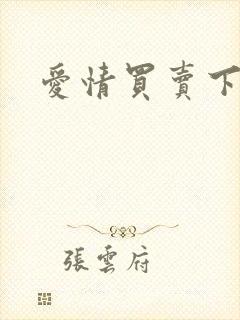 愛情買賣下
張雲府